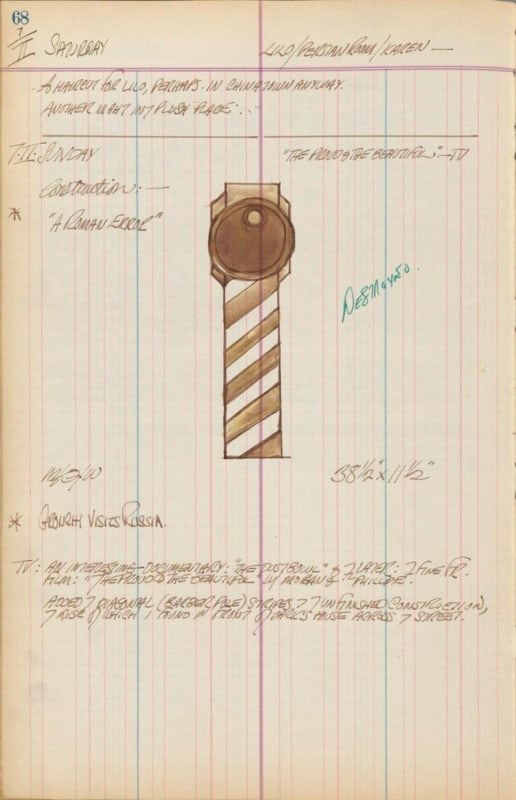 68
7/II SATURDAY LILO/PERSIAN ROOM/KAREN —
A HAIRCUT FOR LILO, PERHAPS. IN CHINATOWN ANYWAY.
ANOTHER NIGHT IN 7 PLUSH PLACE...
7.II.SUNDAY "THE PROUD & THE BEAUTIFUL" — TV
Construction: —
* "A ROMAN ERROR"
DES MOYNES.
M/O/W 38 1/2" X 11 1/2"
* GRONCHY VISITS RUSSIA.
TV: AN INTERESTING DOCUMENTARY: "THE DUST BOWL" & LATER: FINE FR.
FILM: "THE PROUD & THE BEAUTIFUL" W/ MORGAN & PHILLIPE.
ADDED 7 DIAGONAL (BARBER POLE) STRIPES 7 7 UNFINISHED CONSTRUCTION,
7 DISC OF WHICH I FOUND IN FRONT OF HOUSE ACROSS 7 STREET.